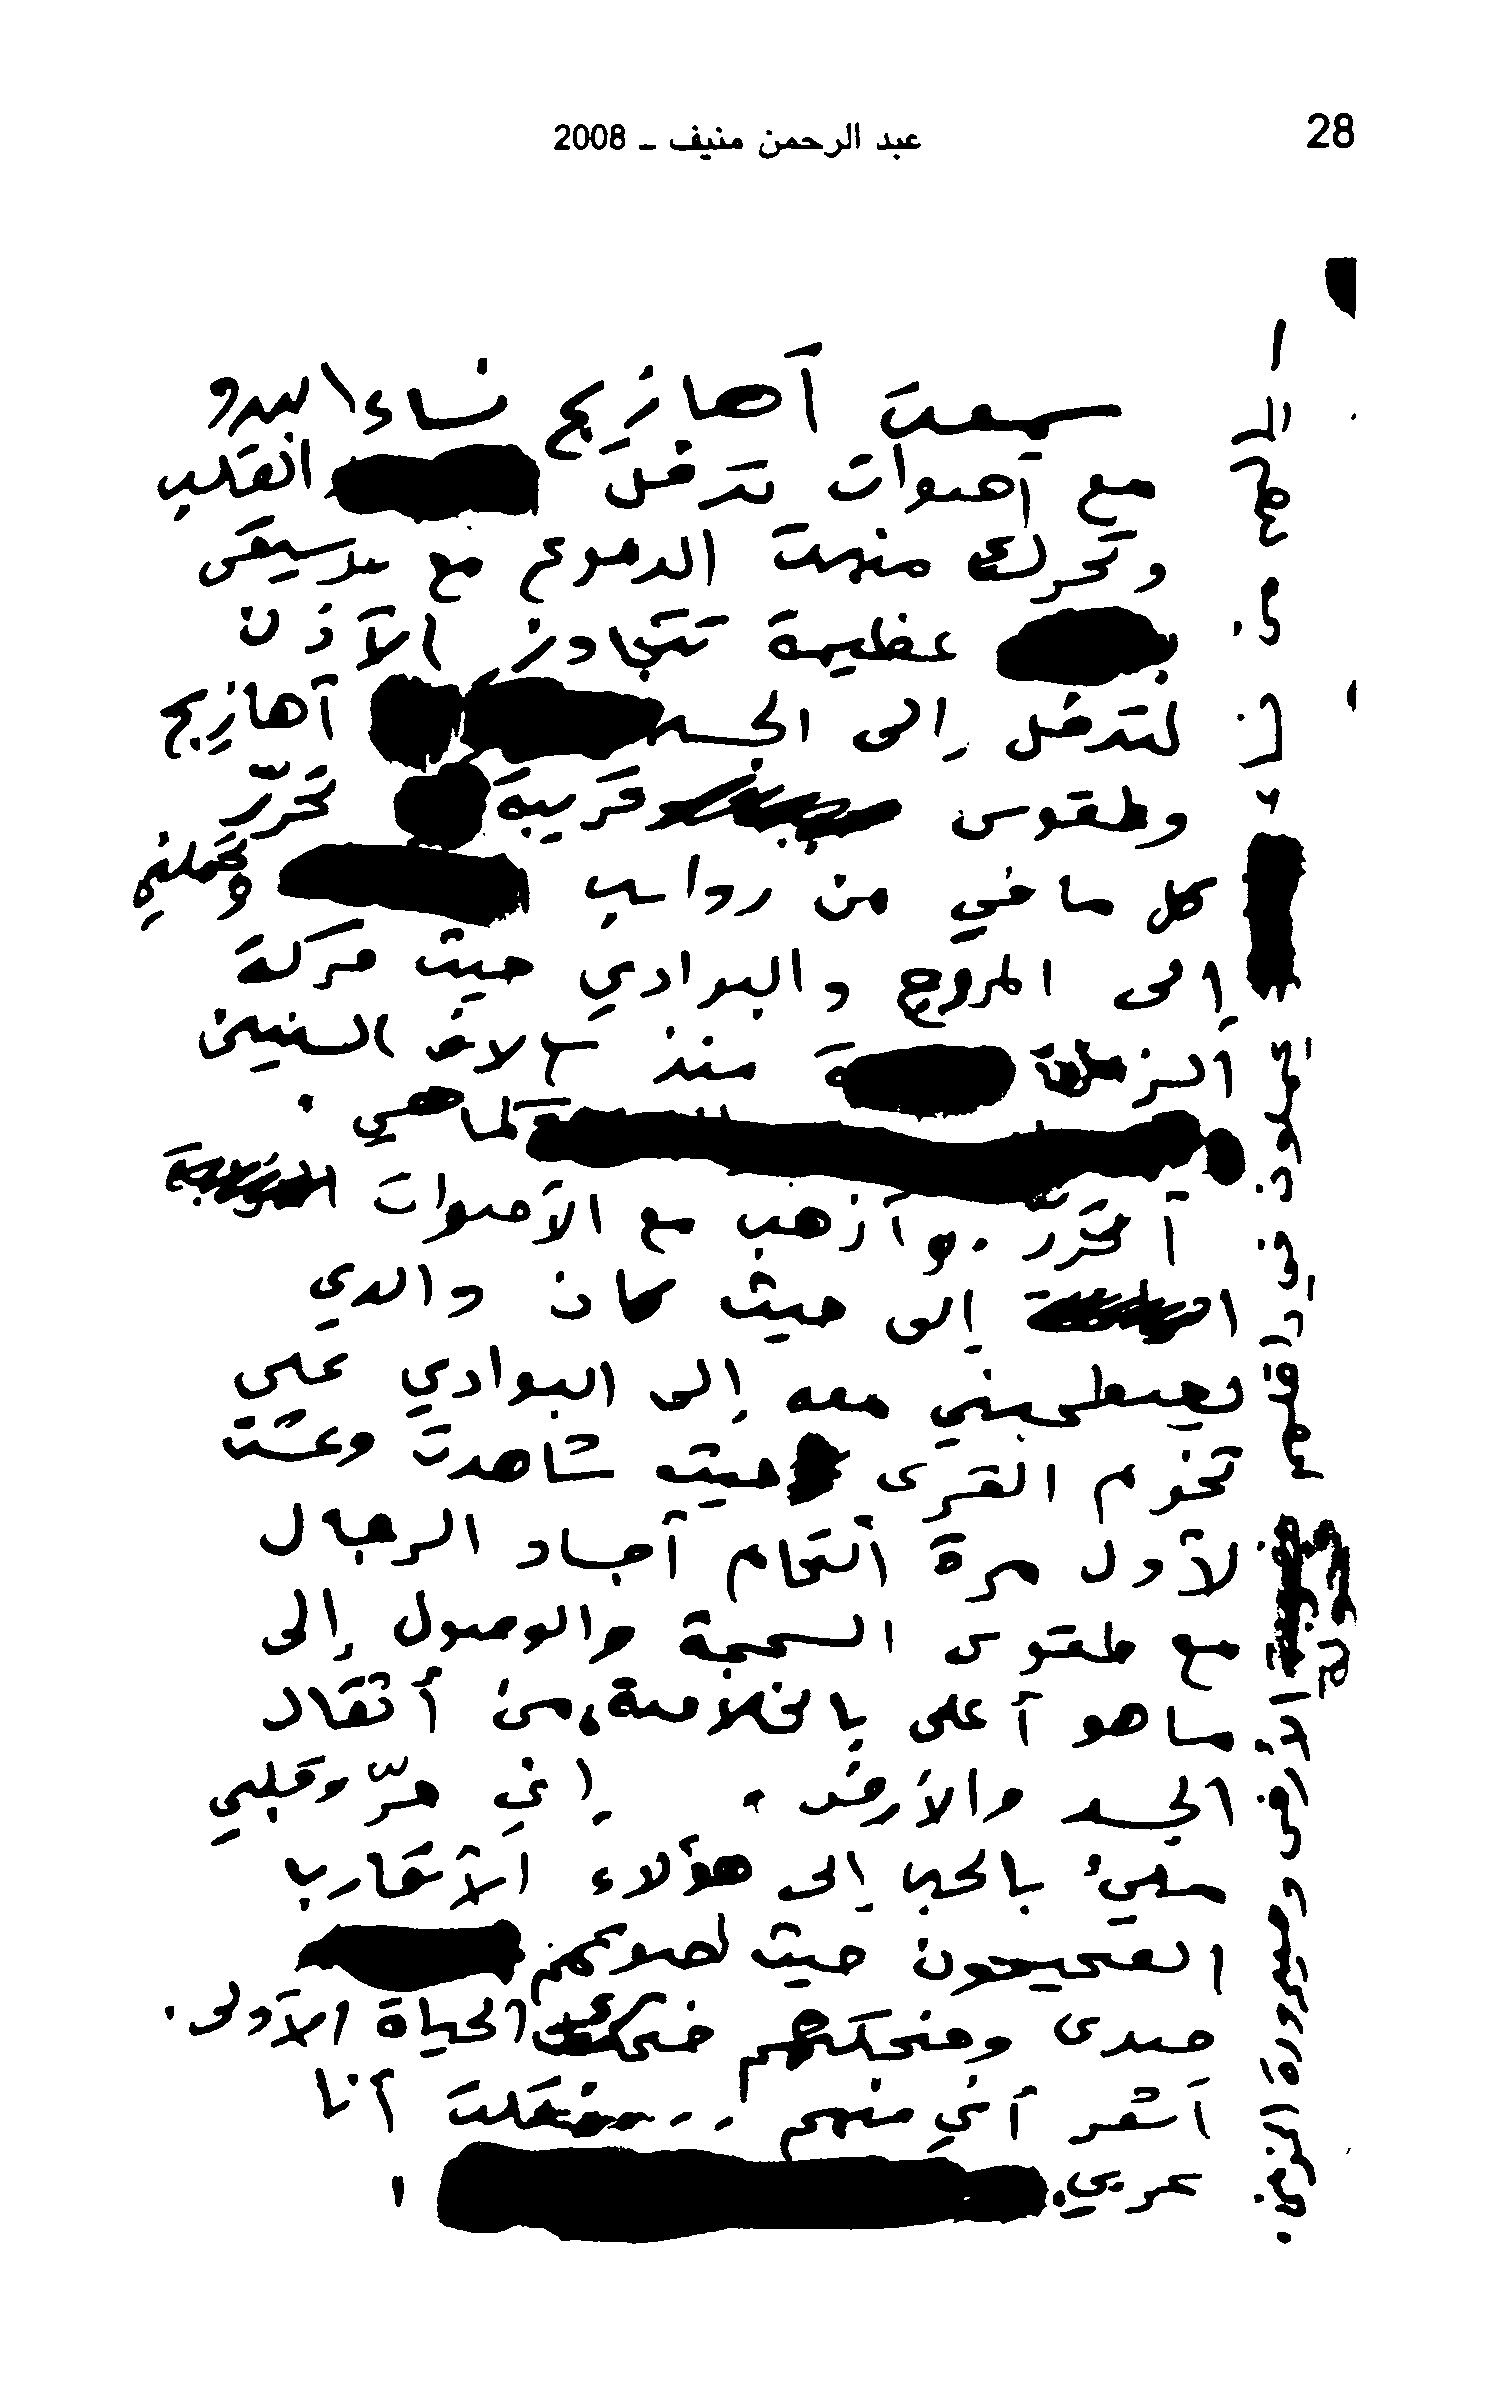 28
عبد الرحمن منيف - 2008
سمعت أهازيج نساء البدو
مع أصوات تدخل القلب
وتحرك منهن الدموع مع موسيقى
عظيمة تتجاوز الأذن
لتدخل إلى الجسد أهازيج
وطقوس غريبة تحرّر
كل ما في من رواسب وتحملني
إلى المروج والبوادي حيث حركة
الزمن منذ آلاف السنين
كما هي.
أتحرّر. وأذهب مع الأصوات
إلى حيث كان والدي
يصطحبني معه إلى البوادي على
تخوم القرى حيث شاهدت وعشت
لأول مرة التحام أجساد الرجال
مع طقوس السحجة والوصول إلى
ما هو أعلى بالخلاص من أثقال
الجسد والأرض. إني حرّ وقلبي
مليئ بالحب إلى هؤلاء الأقارب
الصحيحون حيث لصوتهم
صدى وضحكهم ضحك الحياة الأولى.
أشعر أني منهم .. وقلت أنا
عربي.
في داخلهم
الأرض وصيرورة الزمن.